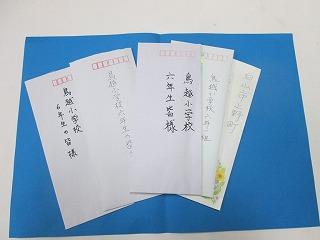 鳥越小学校
６年生の皆様
鳥越小学校六年の皆
鳥越小学校
六年生皆様
鳥越小学校六年
白山市上野町